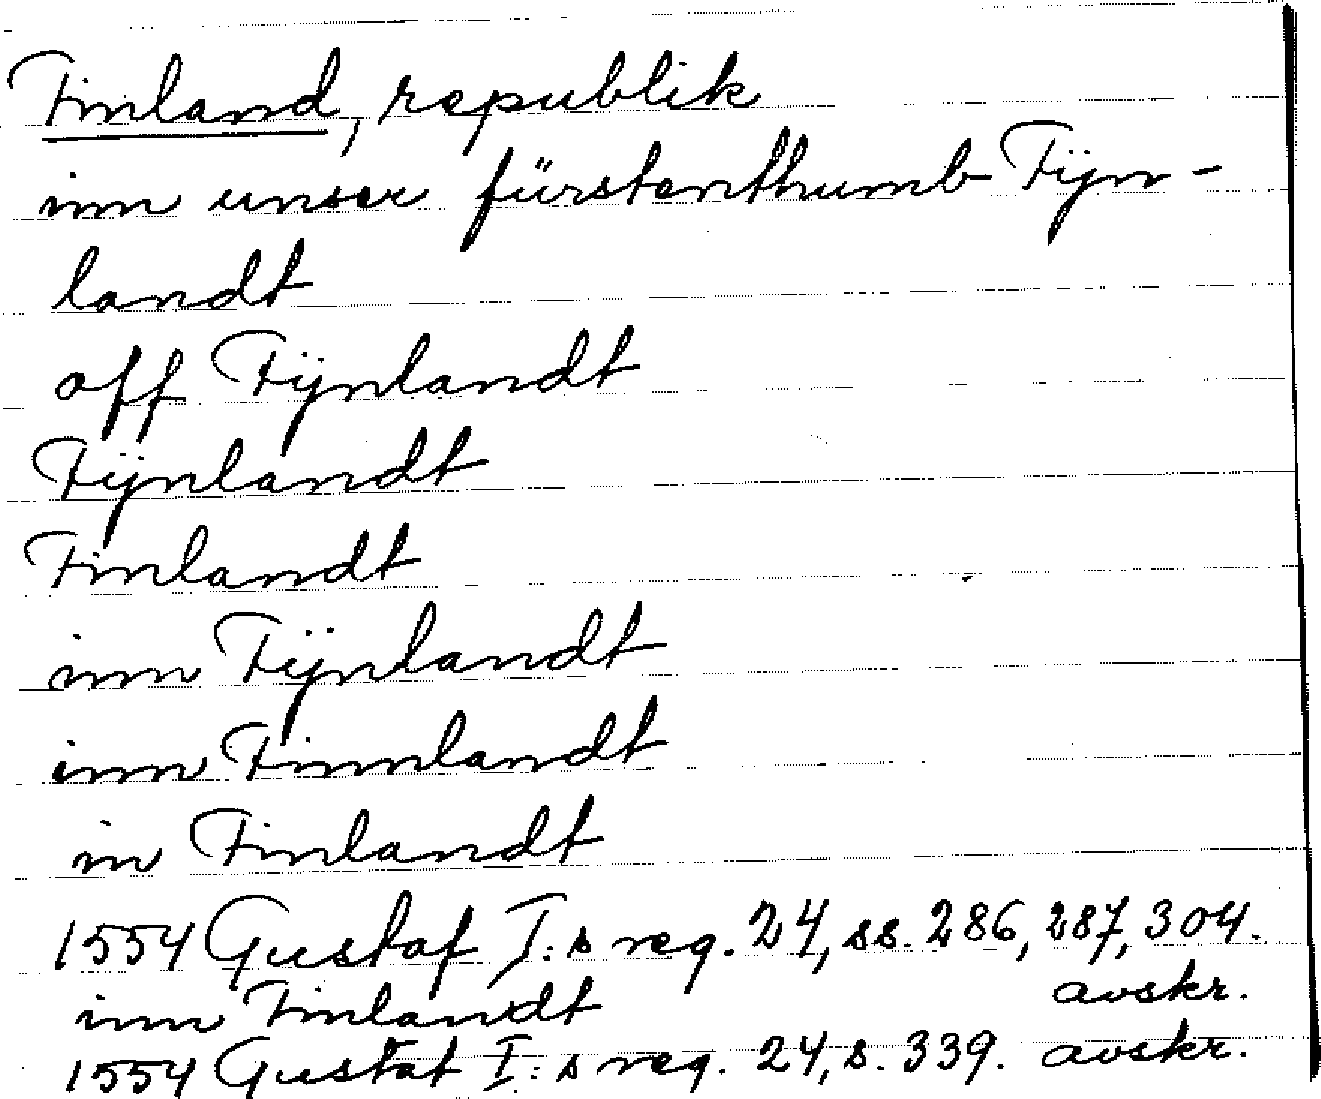 Finland, republik
inn unser fürstenthumb Fÿn-
landt
off Fÿnlandt
Fÿnlandt
Finlandt
inn Fÿnlandt
inn Finnlandt
in Finlandt
1554 Gustaf I:s reg. 24, ss. 286, 287, 304.
avskr.
inn Finlandt
1554 Gustaf I:s reg. 24, s. 339. avskr.